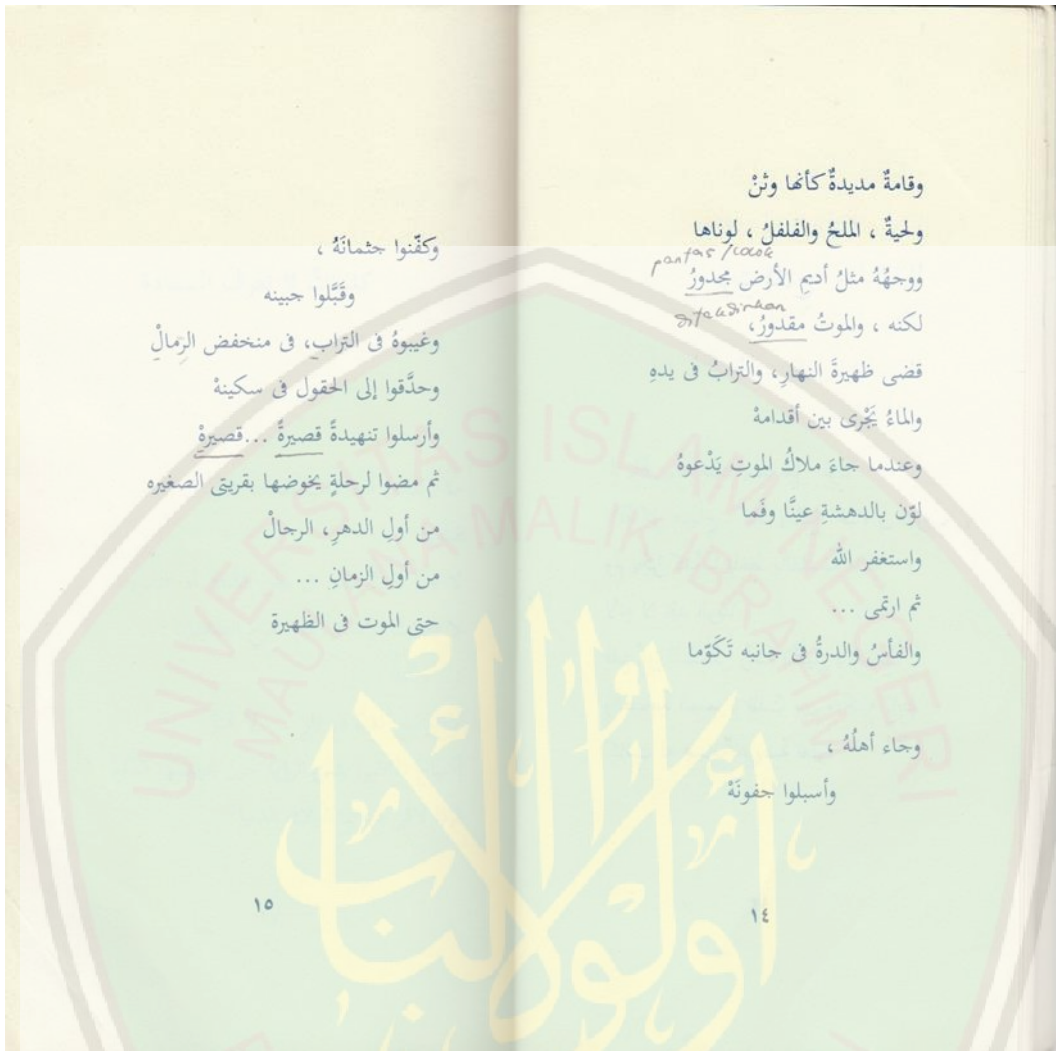 وقامةٌ مديدةٌ كأنها وثنْ
ولحيةٌ ، الملحُ والفلفلُ ، لوناها
pantas / cocok
ووجهُهُ مثلُ أديمِ الأرض مجدورُ
ditakdirkan
لكنه ، والموتُ مقدورُ،
قضى ظهيرةَ النهارِ، والترابُ فى يدهِ
والماءُ يَجْرى بين أقدامهْ
وعندما جاءَ ملاكُ الموتِ يَدْعوهُ
لوّن بالدهشةِ عينًا وفَما
واستغفر الله
ثم ارتمى ...
والفأسُ والدرةُ فى جانبه تَكَوّما
وجاء أهلُهُ ،
وأسبلوا جفونَهْ
١٤
وكفّنوا جثمانَهُ ،
وقَبَّلوا جبينه
وغيبوهُ فى الترابِ، فى منخفض الرِمالْ
وحدَّقوا إلى الحقول فى سكينهْ
وأرسلوا تنهيدةً قصيرةً ... قصيرهْ
ثم مضوا لرحلةٍ يخوضها بقريتى الصغيره
من أولِ الدهرِ، الرجالْ
من أولِ الزمانِ ...
حتى الموت فى الظهيرة
١٥
UNIVERSITAS ISLAM NEGERI
MAULANA MALIK IBRAHIM
أولوا الألباب